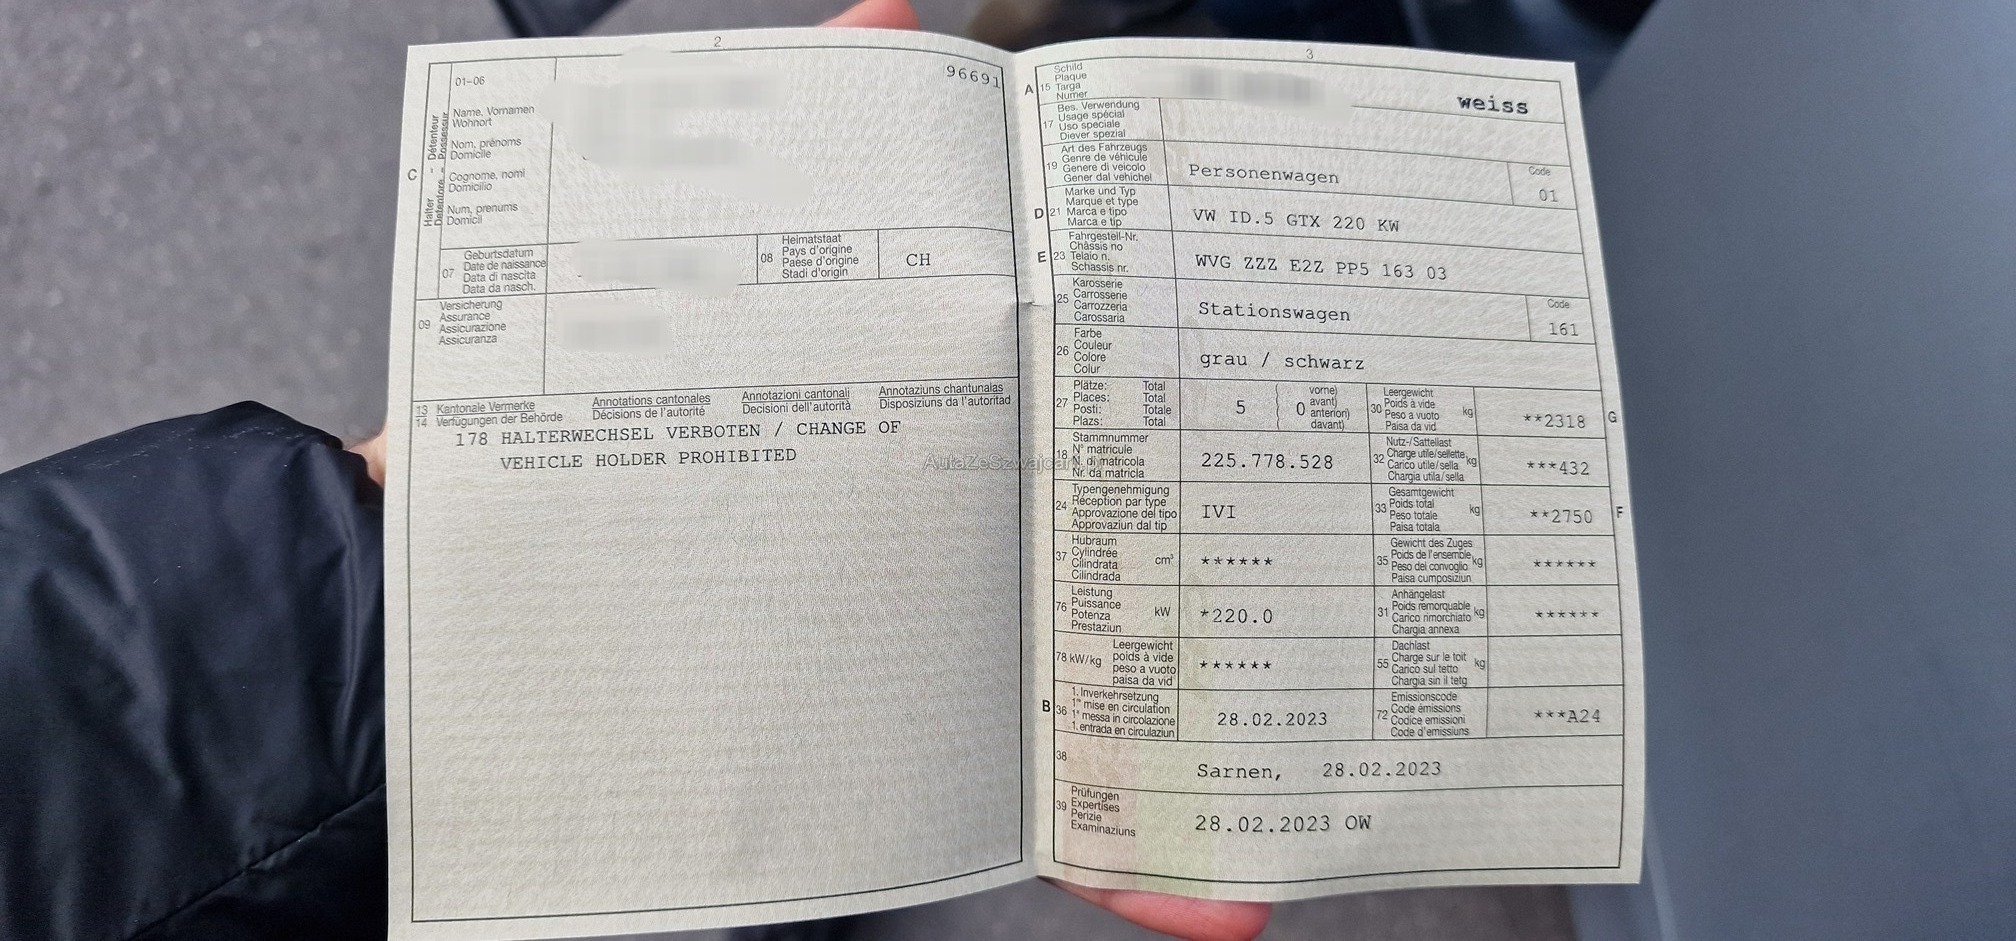 2
01-06
96691
C
Halter - Détenteur
Detentore - Possessur
Name, Vornamen
Wohnort
Nom, prénoms
Domicile
Cognome, nomi
Domicilio
Num, prenums
Domicil
07
Geburtsdatum
Date de naissance
Data di nascita
Data da nasch.
08
Heimatstaat
Pays d'origine
Paese d'origine
Stadi d'origin
CH
09
Versicherung
Assurance
Assicurazione
Assicuranza
13 Kantonale Vermerke
14 Verfügungen der Behörde
Annotations cantonales
Décisions de l'autorité
Annotazioni cantonali
Decisioni dell'autorità
Annotaziuns chantunalas
Disposiziuns da l'autoritad
178 HALTERWECHSEL VERBOTEN / CHANGE OF
VEHICLE HOLDER PROHIBITED
3
A 15
Schild
Plaque
Targa
Numer
weiss
17
Bes. Verwendung
Usage spécial
Uso speciale
Diever spezial
19
Art des Fahrzeugs
Genre de véhicule
Genere di veicolo
Gener dal vehichel
Personenwagen
Code
01
D 21
Marke und Typ
Marque et type
Marca e tipo
Marca e tip
VW ID.5 GTX 220 KW
E 23
Fahrgestell-Nr.
Châssis no
Telaio n.
Schassis nr.
WVG ZZZ E2Z PP5 163 03
25
Karosserie
Carrosserie
Carrozzeria
Carossaria
Stationswagen
Code
161
26
Farbe
Couleur
Colore
Colur
grau / schwarz
27
Plätze: Total
Places: Total
Posti: Totale
Plazs: Total
5
0
vorne)
avant)
anteriori)
davant)
30
Leergewicht
Poids à vide
Peso a vuoto
Paisa da vid
kg
**2318
G
18
Stammnummer
N° matricule
N. di matricola
Nr. da matricla
225.778.528
32
Nutz-/Sattellast
Charge utile/sellette
Carico utile/sella
Chargia utila/sella
kg
***432
24
Typengenehmigung
Réception par type
Approvazione del tipo
Approvaziun dal tip
IVI
33
Gesamtgewicht
Poids total
Peso totale
Paisa totala
kg
**2750
F
37
Hubraum
Cylindrée
Cilindrata
Cilindrada
cm³
******
35
Gewicht des Zuges
Poids de l'ensemble
Peso del convoglio
Paisa cumposiziun
kg
******
76
Leistung
Puissance
Potenza
Prestaziun
kW
*220.0
31
Anhängelast
Poids remorquable
Carico rimorchiato
Chargia annexa
kg
******
78 kW/kg
Leergewicht
poids à vide
peso a vuoto
paisa da vid
******
55
Dachlast
Charge sur le toit
Carico sul tetto
Chargia sin il tetg
kg
B 36
1. Inverkehrsetzung
1re mise en circulation
1a messa in circolazione
1. entrada en circulaziun
28.02.2023
72
Emissionscode
Code émissions
Codice emissioni
Code d'emissiuns
***A24
38
Sarnen, 28.02.2023
39
Prüfungen
Expertises
Perizie
Examinaziuns
28.02.2023 OW